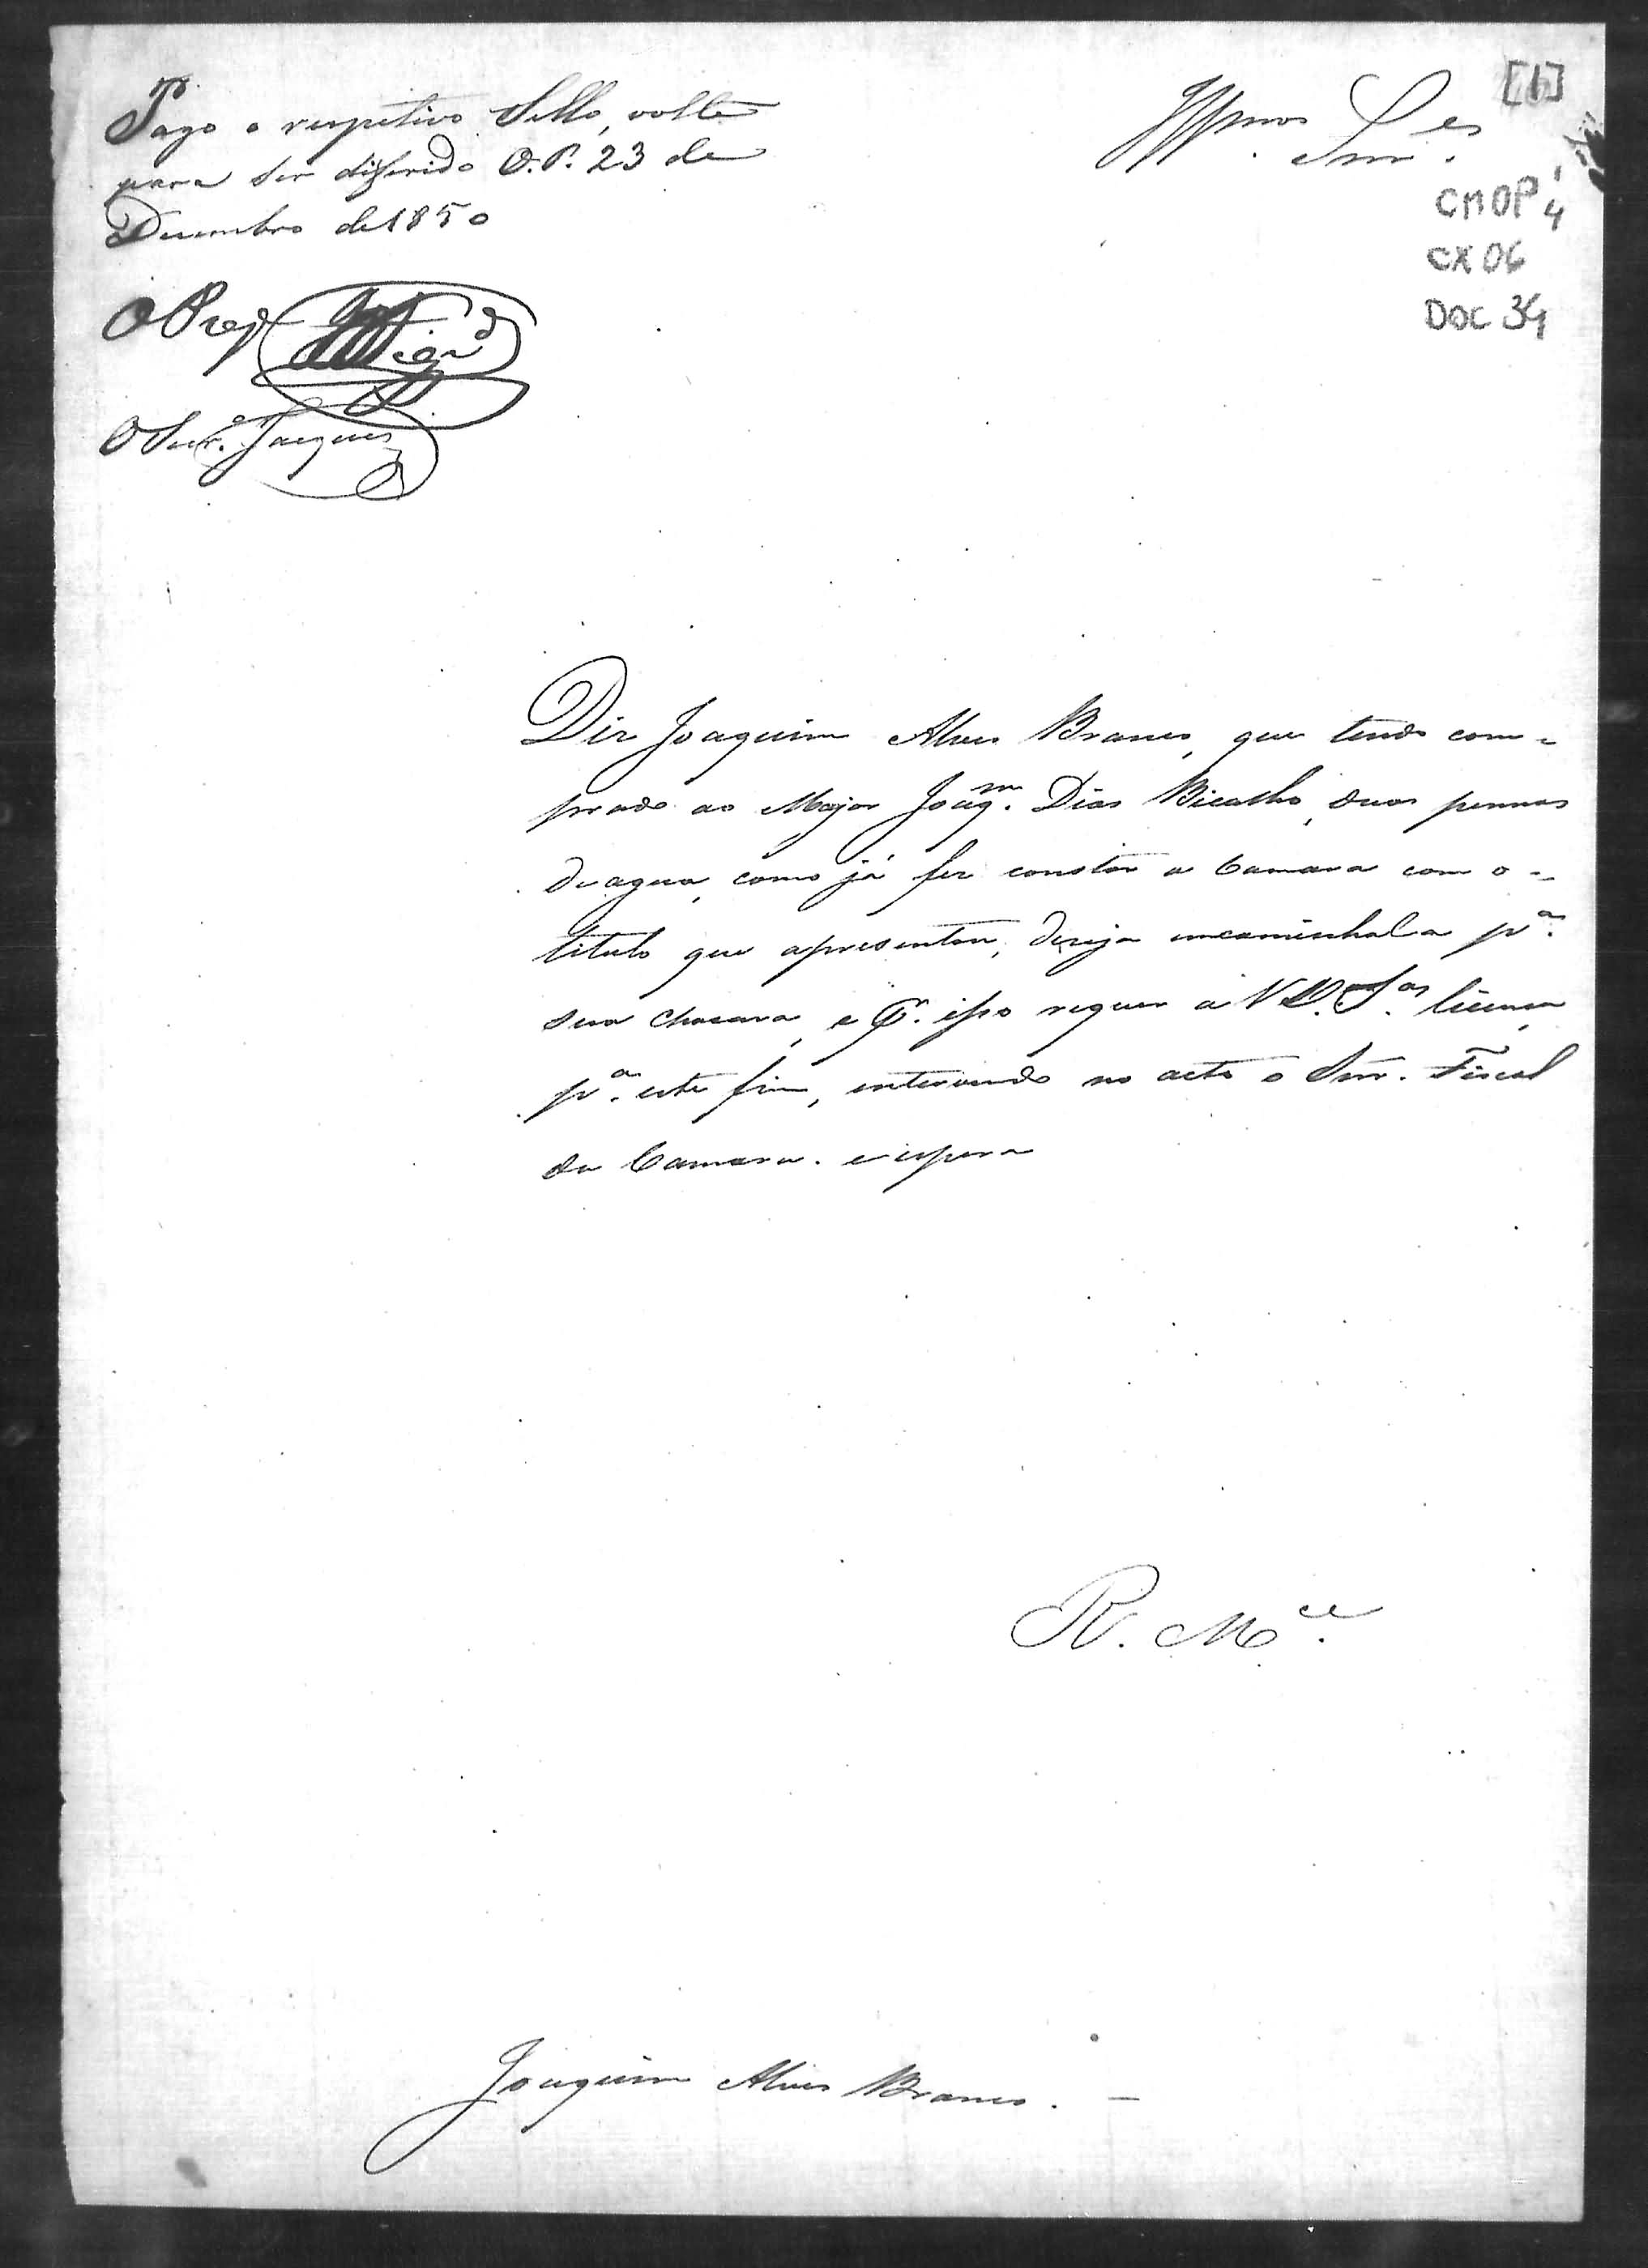 Pago o respetivo Sello, volte
para ser disferido O. P. 23 de
Desembro de 1850
O Secr.º Jacques
Illmos Snr.es
[1]
CMOP 1/4
CX 06
DOC 34
Diz Joaquim Alves Branco, que tendo com=
prado ao Major Joaq.m Dias Bicalho, duas pennas
de agua, como já fez constar a Camara com o =
titulo que apresentou, deseja encaminhala p.a
sua chacara, e P.r isso requer a V V. S.as licença
p.a este fim, intervindo no acto o Snr. Fiscal
da Camara. e espera
R. M.ce
Joaquim Alves Branco. —